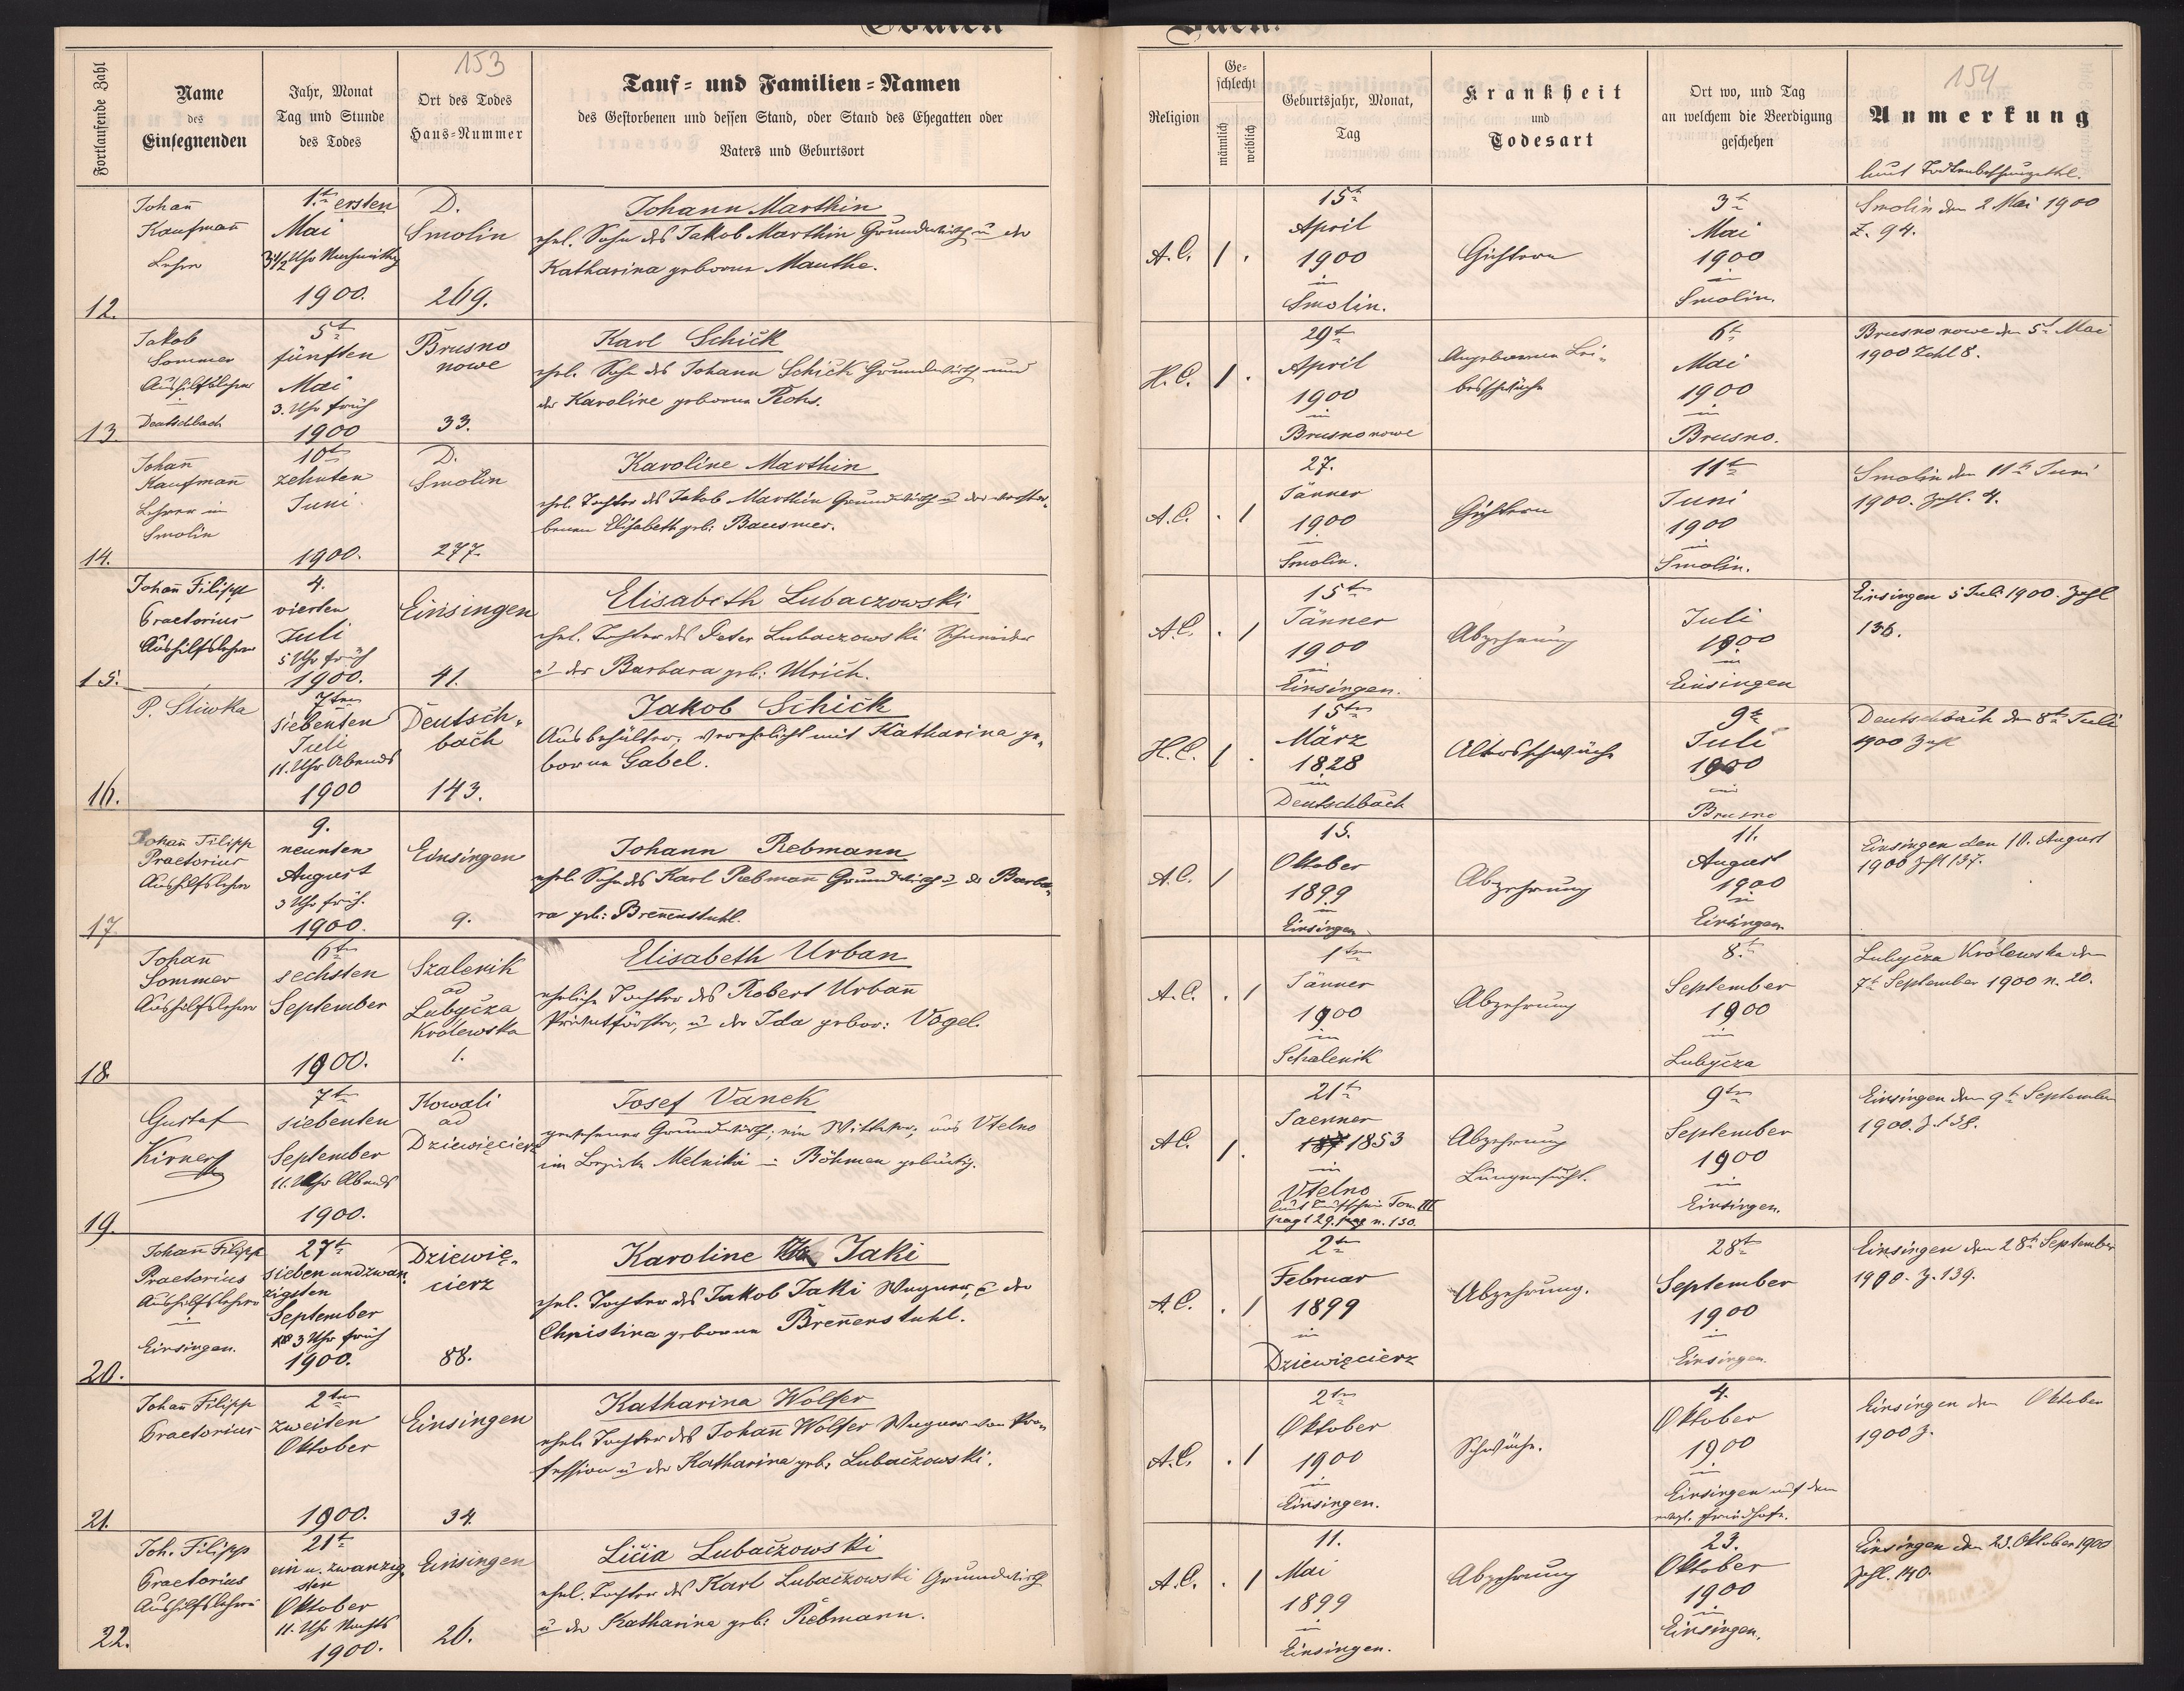 153
Fortlaufende Zahl
Name
des
Einsegnenden
Jahr, Monat
Tag und Stunde
des Todes
Ort des Todes
Haus-Nummer
Tauf- und Familien-Namen
des Gestorbenen und dessen Stand, oder Stand des Ehegatten oder
Vaters und Geburtsort
Religion
Ge-
schlecht
männlich
weiblich
Geburtsjahr, Monat,
Tag
Krankheit
und
Todesart
Ort wo, und Tag
an welchem die Beerdigung
geschehen
154
Anmerkung
laut
12.
Johañ
Kaufmañ
Lehrer
1.t ersten
Mai
3 1/2 Uhr Nachmittag
1900.
D.
Smolin
269.
Johann Marthin
ehel. Sohn des Jakob Marthin Grundwirth u der
Katharina geborner Mauthe.
A.C.
1 .
15t
April
1900
in
Smolin.
3t
Mai
1900
in
Smolin.
Smolin den 2 Mai 1900
Z. 94.
13.
Jakob
Sommer
Aushilfslehrer
Deutschbach
5t
fünften
Mai
3. Uhr früh
1900
Brusno
nowe
33.
Karl Schick
ehel. Sohn des Johann Schick Grundwirth und
der Karoline geborner Rohs.
H.C.
1 .
29t
April
1900
in
Brusno nowe
Angeborne Lei-
besschwäche
6t
Mai
1900
in
Brusno.
Brusno nowe den 5t Mai
1900 Zahl 8.
14.
Johañ
Kaufmañ
Lehrer in
Smolin
10t
zehnten
Juni.
1900.
D.
Smolin
277.
Karoline Marthin
ehel. Tochter des Jakob Marthin Grundwirth u der verstor-
benen Elisabeth geb: Bausmer.
A.C.
. 1
27.
Jänner
1900
in
Smolin.
11t
Juni
1900
in
Smolin.
Smolin den 11t Juni
1900. Zahl. 4.
15.
Johañ Filipp
Praetorius
Aushilfslehrer
4.
vierten
Juli
5 Uhr früh
1900.
Einsingen
41.
Elisabeth Lubaczowski
ehel. Tochter des Peter Lubaczowski Schneider
u der Barbara geb: Ulrich.
A.C.
. 1
15t
Jänner
1900
in
Einsingen.
Abzehrung
Juli
1900
in
Einsingen
Einsingen 5 Juli 1900. Zahl
136.
16.
P. Sliwka
7ten
siebenten
Juli
11. Uhr Abends
1900
Deutsch-
bach
143.
Jakob Schick
Ausbehälter, verehelicht mit Katharina ge-
borne Gabel.
H.C.
1 .
15ten
März
1828
in
Deutschbach
Altersschwäche
9t
Juli
1900
in
Brusno
Deutschbach den 8t Juli
1900 Zahl
17.
Johañ Filipp
Praetorius
Aushilfslehrer
9.
neunten
August
3 Uhr früh.
1900.
Einsingen
9.
Johann Rebmann
ehel. Sohn des Karl Rebmañ Grundwirth u der Barba-
ra geb: Breñenstuhl.
A.C.
1
15.
Oktober
1899
in
Einsingen.
Abzehrung
11.
August
1900
in
Einsingen
Einsingen den 10. August
1900 Zahl 137.
18.
Johañ
Sommer
Aushilfslehrer
6t
sechsten
September
1900.
Szalenik
ad
Lubycza
Krolewska
1.
Elisabeth Urban
eheliche Tochter des Robert Urbañ
Privatförster, u der Ida gebor: Vogel.
A.C.
. 1
1ten
Jänner
1900
in
Schalenik
Abzehrung
8.t
September
1900
in
Lubycza
Lubycza Krolewska den
7t September 1900 n. 20.
19.
Gustaf
Kirner
7t
siebenten
September
11. Uhr Abends
1900.
Kowali
ad
Dziewięcierz
Josef Vanek
gewesener Grundwirth; ein Wittwer; aus Vtelno
im Bezirke Melniki in Böhmen gebürtig.
A.C.
1 .
21t
Jaenner
187 1853
in
Vtelno
laut Taufschein Tom III
pag 129. pag n. 130.
Abzehrung
Lungensucht.
9ten
September
1900
in
Einsingen.
Einsingen den 9t September
1900. Z. 138.
20.
Johañ Filipp
Praetorius
Aushilfslehrer
Einsingen.
27t
sieben und zwan-
zigsten
September
3 Uhr früh
1900.
Dziewię-
cierz
88.
Karoline Jaki
ehel. Tochter des Jakob Jaki Wagner, u der
Christina geborne Breñenstuhl.
A.C.
. 1
2ten
Februar
1899
in
Dziewięcierz
Abzehrung.
28t
September
1900
in
Einsingen.
Einsingen den 28t September
1900. Z. 139.
21.
Johañ Filipp
Praetorius
2ten
zweiten
Oktober
1900.
Einsingen
34.
Katharina Wolfer
ehel. Tochter des Johañ Wolfer Wagner von Pro-
fession u der Katharina geb: Lubaczowski.
A.C.
. 1
2ten
Oktober
1900
in
Einsingen.
Schwäche.
4.
Oktober
1900
in
Einsingen auf dem
evgl. Friedhofe.
Einsingen den Oktober
1900 Z.
22.
Joh. Filipp
Praetorius
Aushilfslehrer
21t
ein u. zwanzig-
sten
Oktober
11. Uhr Nachts
1900.
Einsingen
26.
Licia Lubaczowski
ehel. Tochter des Karl Lubaczowski Grundwirth
u der Katharina geb: Rebmann.
A.C.
. 1
11.
Mai
1899
in
Einsingen.
Abzehrung
23.
Oktober
1900
in
Einsingen.
Einsingen den 23. Oktober 1900
Zahl. 140.